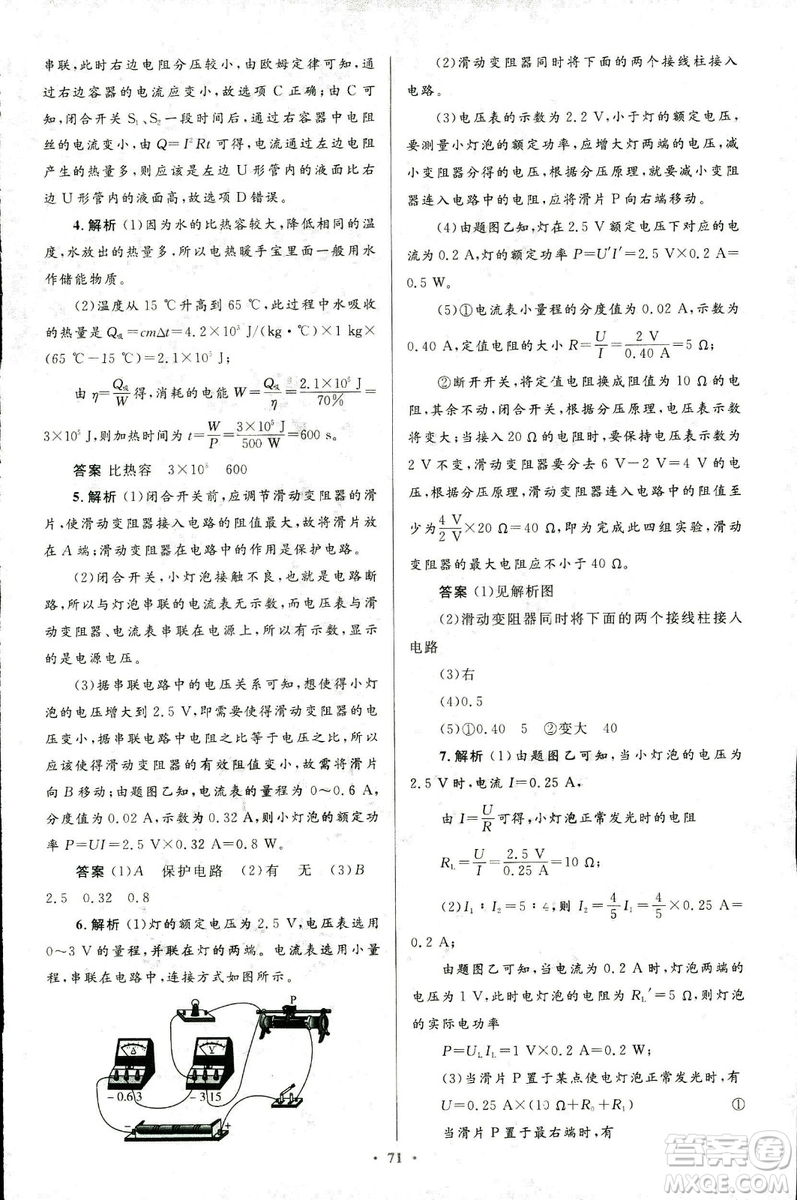 串联，此时右边电阻分压较小，由欧姆定律可知，通过
右边容器的电流应变小，故选项 C 正确；由 C 可
知，闭合开关 S₁、S₂ 一段时间后，通过右容器中电阻
丝的电流变小，由 Q=I²Rt 可得，电流流过左边电阻
产生的热量多，则应该是左边 U 形管内的液面比右
边 U 形管内的液面高，故选项 D 错误。
4. 解析 (1)因为水的比热容较大，降低相同的温
度，水放出的热量多，所以电热暖手宝里面一般用水
作储能物质。
(2)温度从 15 ℃升高到 65 ℃过程中水吸收
的热量 Q吸=cmΔt=4.2×10³ J/(kg·℃)×1 kg×
(65 ℃-15 ℃)=2.1×10⁵ J；
由 η=Q吸/W得，消耗的电能 W=Q吸/η=2.1×10⁵ J/70%=
3×10⁵ J，则加热时间为 t=W/P=3×10⁵ J/500 W=600 s。
答案 比热容 3×10⁵ 600
5. 解析 (1)闭合开关前，应调节滑动变阻器的滑
片，使滑动变阻器接入电路的阻值最大，故将滑片放
在 A 端；滑动变阻器在电路中的作用是保护电路。
(2)闭合开关，小灯泡接触不良，也就是电路断
路，所以与灯泡串联的电流表无示数，而电压表与滑
动变阻器、电流表串联在电源上，所以有示数，显示
的是电源电压。
(3)据串联电路中的电压关系可知，想使得小灯
泡的电压增大到 2.5 V，即需要使得滑动变阻器的电
压变小，串联电路中电压之比等于电阻之比，所以
应该使得滑动变阻器的有效阻值变小，故需将滑片
向 B 移动；由题图乙可知，电流表的量程为 0～0.6 A，
分度值为 0.02 A，示数为 0.32 A，所以灯泡的额定功
率 P=UI=2.5 V×0.32 A=0.8 W。
答案 (1)A 保护电路 (2)有 无 (3)B
2.5 0.32 0.8
6. 解析 (1)灯的额定电压为 2.5 V，电压表选用
0～3 V 的量程，并联在灯的两端。电流表选用小量
程，串联在电路中，连接方式如图所示。
P
A V
-0.63 -315
- +
(2)滑动变阻器同时将下面的两个接线柱接入
电路。
(3)电压表的示数为 2.2 V，小于灯的额定电压，
要测量小灯泡的额定功率，应增大灯两端的电压，减
小滑动变阻器的电压，根据分压原理，要减小变阻
器连入电路中的电阻，应将滑片 P 向右端移动。
(4)由题图乙知，灯在额定电压下对应的电流为
0.2 A，灯的额定功率 P=U′I′=2.5 V×0.2 A=
0.5 W。
(5)①电流表小量程的分度值为 0.02 A，示数为
0.40 A，定值电阻的大小 R=U/I=2 V/0.40 A=5 Ω；
②断开开关，将定值电阻换成阻值为 10 Ω 的电阻，
其余不动，闭合开关，根据分压原理，电压表示数
将变大；当接入 20 Ω 的电阻时，要保持电压表示数为
2 V 不变，滑动变阻器要分去 6 V-2 V=4 V 的电
压，根据分压原理，滑动变阻器连入电路中的阻值至
少为4 V/2 V×20 Ω=40 Ω，即为完成此四组实验，滑动
变阻器的最大电阻应不小于 40 Ω。
答案 (1)见解析图
(2)滑动变阻器同时将下面的两个接线柱接人
电路
(3)右
(4)0.5
(5)①0.40 5 ②变大 40
7. 解析 (1)由题图乙可知，当小灯泡的电压为
2.5 V时，电流 I=0.25 A，
由 I=U/R可得，小灯泡正常发光时的电阻
R_L=U/I=2.5 V/0.25 A=10 Ω；
(2)I₁∶I₂=5∶4，所以 I₂=4/5 I₁=4/5×0.25 A=
0.2 A；
由题图乙可知，当电流为 0.2 A 时，灯泡两端的
电压为 1 V，此时电灯泡的电阻为 R_L′=5 Ω，则灯泡
的实际电功率
P=U_L I_L=1 V×0.2 A=0.2 W；
(3)当滑片 P 置于某点使电灯泡正常发光时，有
U=0.25 A×(10 Ω+R₀+R₁) ①
当滑片 P 置于最右端时，有
71
答案圈
MXQE.COM